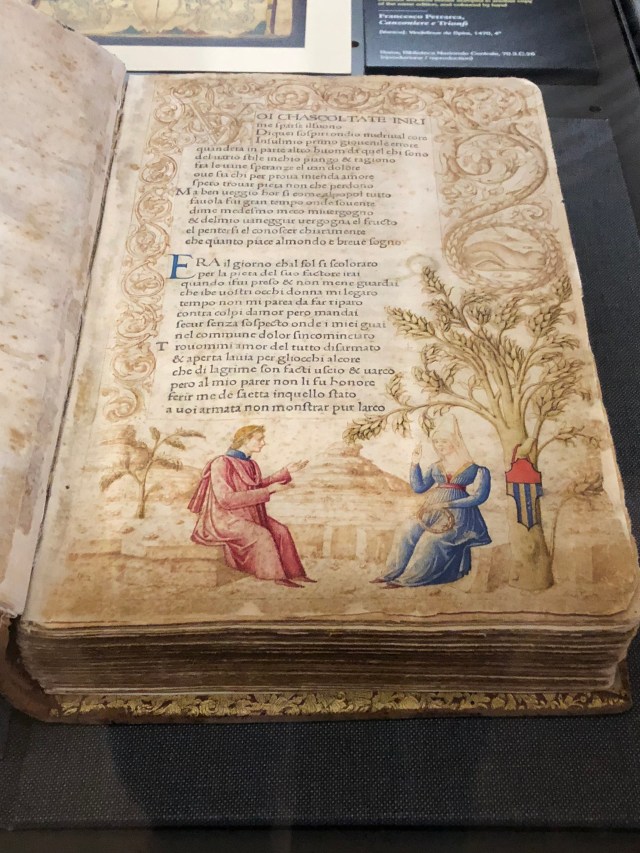 of the same edition, and coloured by hand
Francesco Petrarca,
Canzoniere e Trionfi
Roma, Biblioteca Nazionale Centrale,
(riproduzione / reproduction)
VOI CHASCOLTATE INRI
me sparse ilsuono
Di quei sospiri ondio nudriual core
Insulmio primo giouenile errore
quandera in parte altro huom da quel chi sono
deluario stile inchio piango & ragiono
fra leuane speranze el uan dolore
oue sia chi per proua intenda amore
spero trouar pieta non che perdono
Ma ben ueggio hor si come al popol tutto
fauola fui gran tempo onde souente
dime medesmo meco miuergogno
& delmio uaneggiar uergogna el fructo
el pentersi el conoscer chiaramente
che quanto piace almondo e breue sogno
ERA il giorno chal sol si scolorato
per la pieta del suo factore irai
quando ifui preso & non mene guardai
che ibe uostri occhi donna mi legaro
tempo non mi parea da far riparo
contra colpi damor pero mandai
secur senza sospecto onde i miei guai
nel commune dolor sincominciaro
Trouommi amor del tutto disarmato
& aperta lauia per gliocchi alcore
che di lagrime son facti uscio & uarco
pero al mio parer non li fu honore
ferir me de saetta inquello stato
a uoi armata non monstrar pur larco